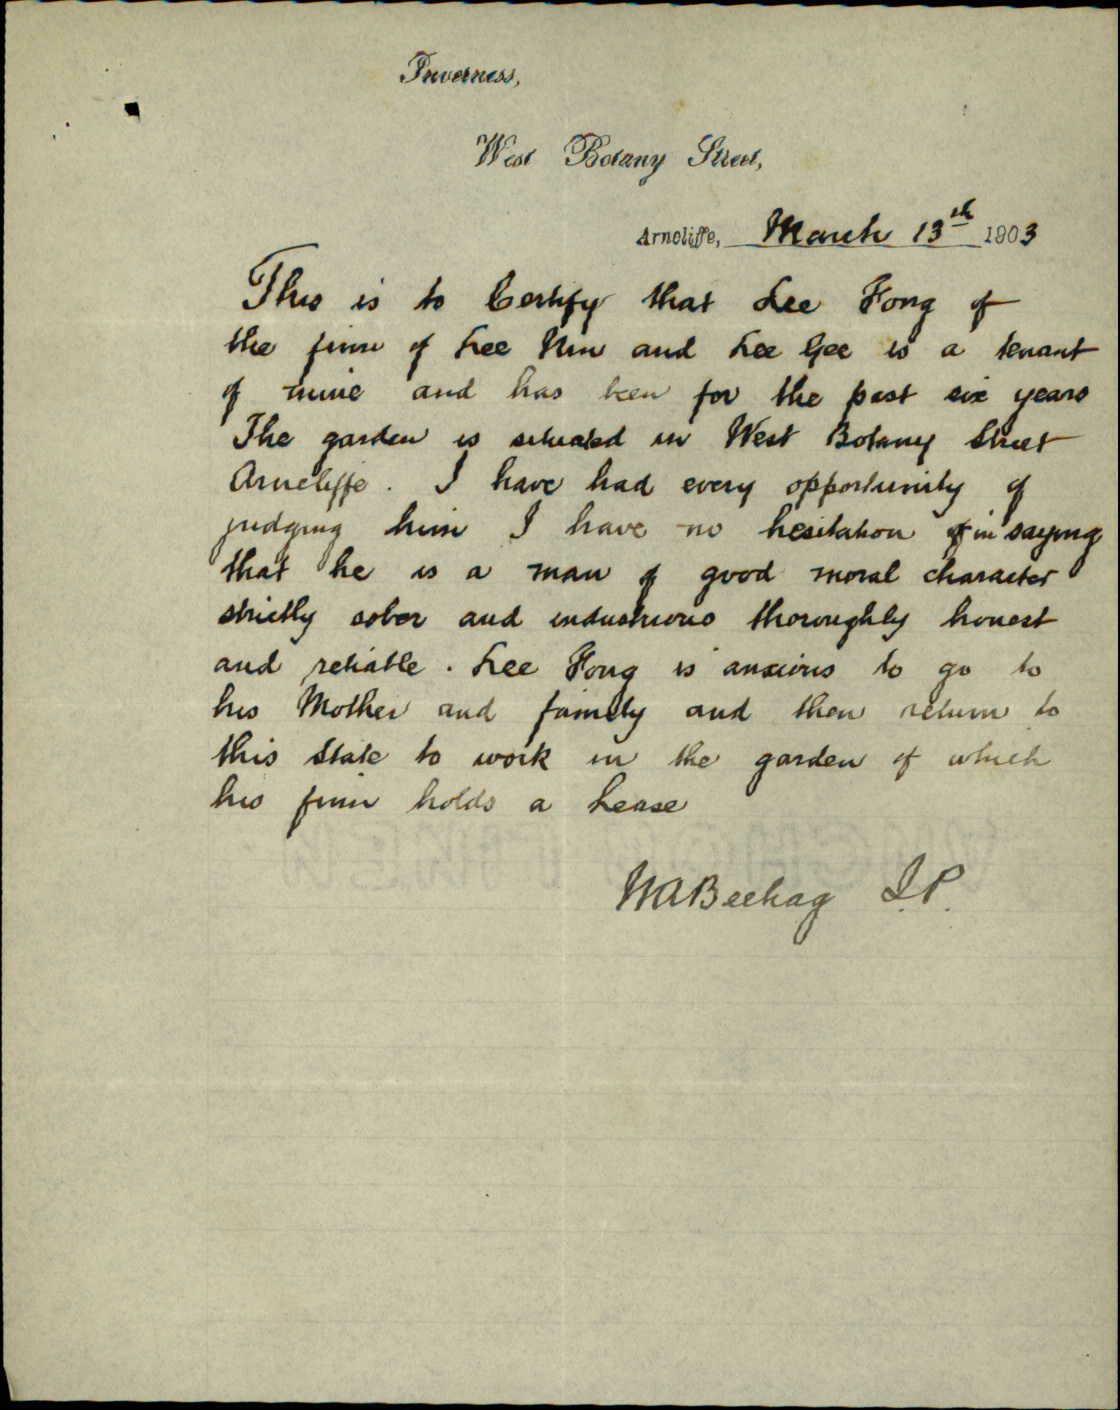 Inverness,
West Botany Street,
Arncliffe, March 13th 1903
This is to Certify that Lee Fong of
the firm of Lee Nin and Lee Gee is a tenant
of mine and has been for the past six years
The garden is situated in West Botany Street
Arncliffe. I have had every opportunity of
judging him I have no hesitation of in saying
that he is a man of good moral character
strictly sober and industrious thoroughly honest
and reliable. Lee Fong is anxious to go to
his Mother and family and then return to
this State to work in the garden of which
his firm holds a Lease
WABeehag J.P.